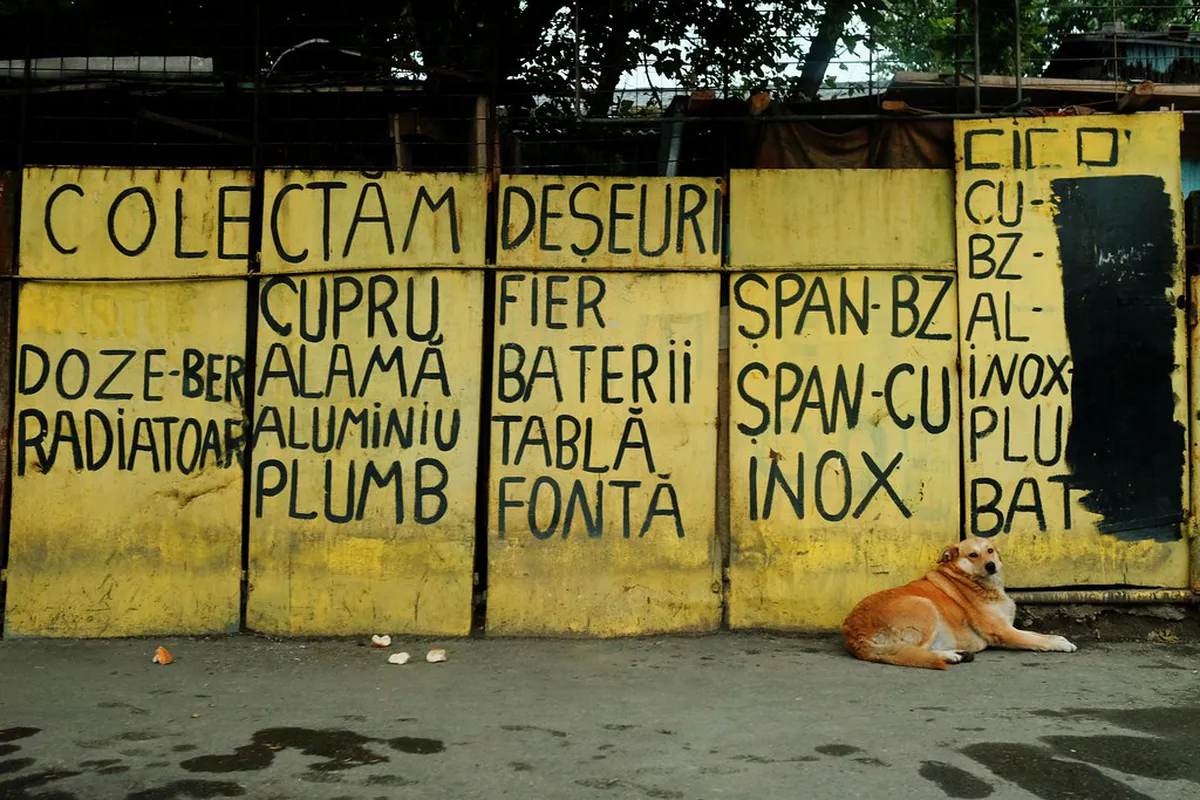 COLECTĂM DEȘEURI
DOZE-BER
RADIATOAR
CUPRU
ALAMĂ
ALUMINIU
PLUMB
FIER
BATERII
TABLĂ
FONTĂ
ȘPAN-BZ
ȘPAN-CU
INOX
CU-
BZ-
AL-
INOX-
PLU
BAT